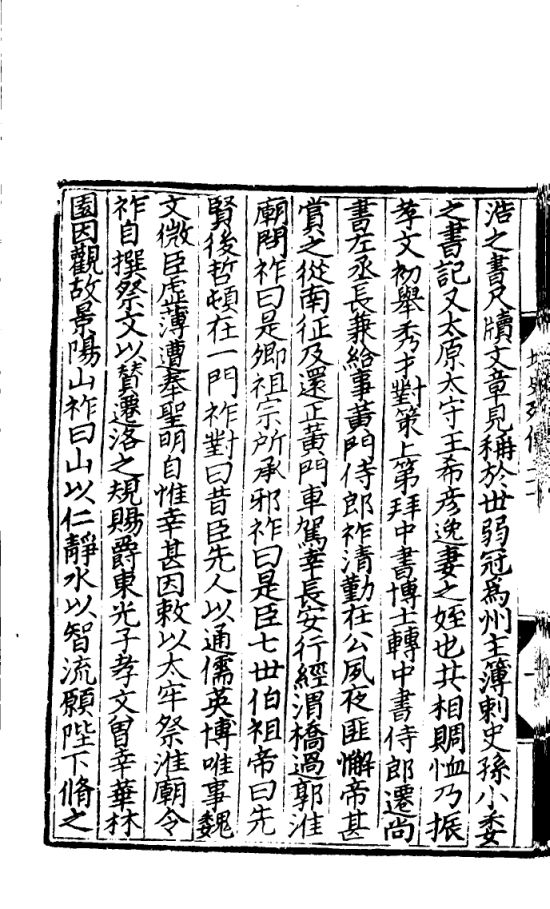 浩之書尺牘文章見稱於世弱冠爲州主簿刺史孫小委
之書記又太原太守王希彦逸妻之姪也共相賙恤乃振
孝文初舉秀才對策上第拜中書博士轉中書侍郎遷尚
書左丞長兼給事黄門侍郎祚清勤在公夙夜匪懈帝甚
賞之從南征及還正黄門車駕幸長安行經渭橋過郭淮
廟問祚曰是卿祖宗所承邪祚曰是臣七世伯祖帝曰先
賢後哲頓在一門祚對曰昔臣先人以通儒英博唯事魏
文微臣虚薄遭奉聖明自惟幸甚因敕以太牢祭淮廟令
祚自撰祭文以賛遷洛之規賜爵東光子孝文曽幸華林
園因觀故景陽山祚曰山以仁靜水以智流願陛下脩之